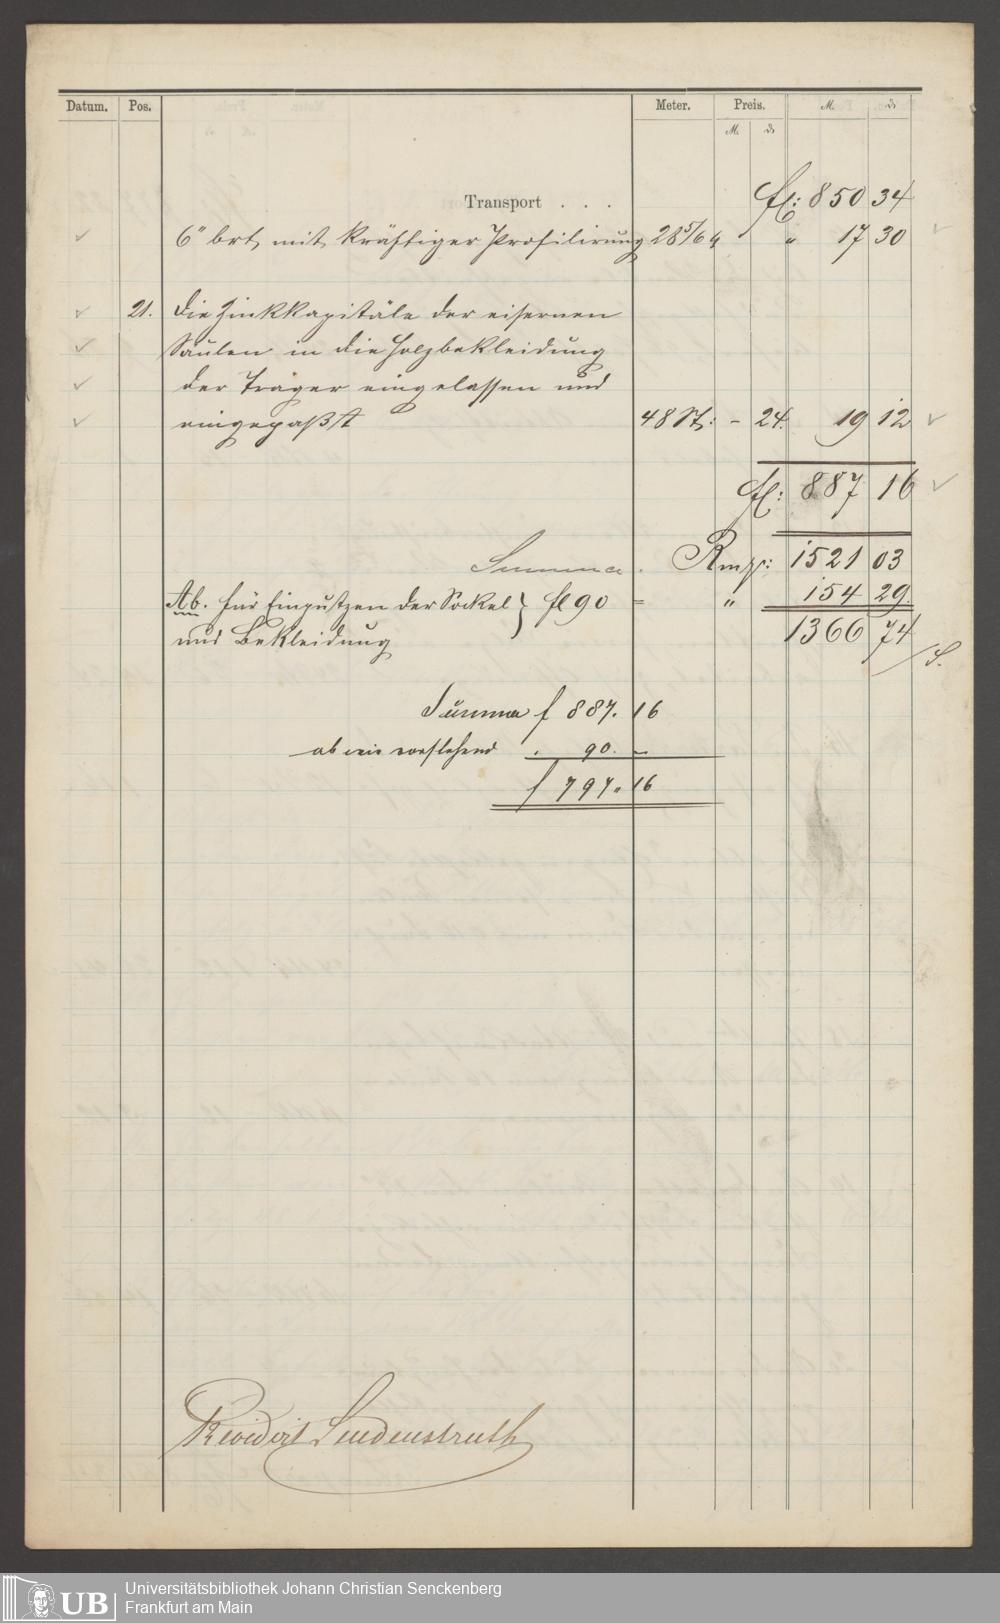 Datum. Pos. Meter. Preis. M. ₰
M. ₰
Transport . . . fl: 850 34
6" brt, mit kräftiger Profilirung 28 5/64 " 17 30
21. Die Zinkkapitäle der eisernen
Säulen in die Holzbekleidung
der Träger eingelassen und
eingepaßt 48 St: – 24. 19 12
fl: 887 16
Summa . Rmk: 1521 03
Ab. für Einputzen der Sockel } fl 90 = " 154 29.
und Bekleidung 1366 74
S.
Summa f 887. 16
ab wie vorstehend . 90. –
f 797. 16
Revidirt Lindenstruth
UB Universitätsbibliothek Johann Christian Senckenberg
Frankfurt am Main